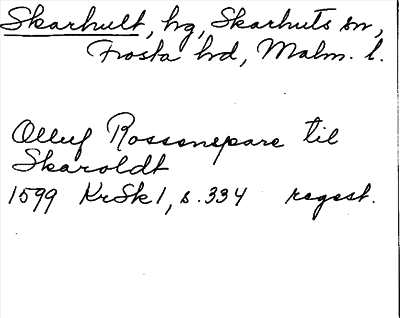 Skarhult, hg, Skarhuts sn,
Frosta hd, Malm. l.
Olluf Rossenspare til
Skaroldt
1599 KrSk 1, s. 334 regest.